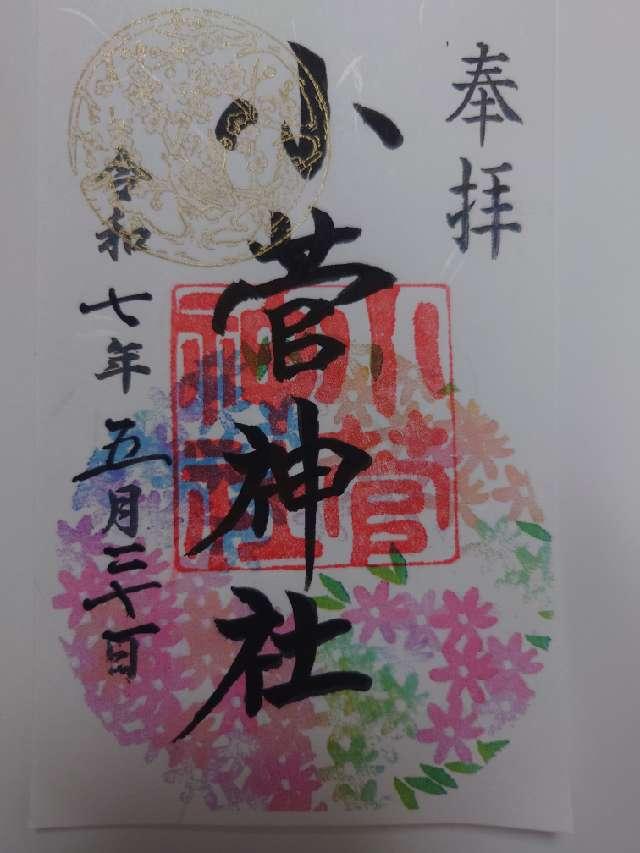 奉拝
小菅神社
小菅神社
令和七年五月三十日